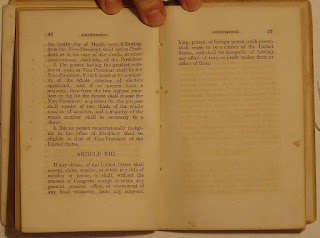 46 AMENDMENTS.
the fourth day of March next following,
then the Vice-President shall act as Presi-
dent, as in the case of the death, or other
constitutional disability, of the President.
2. The person having the greatest num-
ber of votes as Vice-President shall be the
Vice-President, if such number be a major-
ity of the whole number of electors
appointed; and if no person have a
majority, then from the two highest num-
bers on the list the Senate shall choose the
Vice-President; a quorum for the purpose
shall consist of two thirds of the whole
number of senators, and a majority of the
whole number shall be necessary to a
choice.
3. But no person constitutionally ineligi-
ble to the office of President shall be
eligible to that of Vice-President of the
United States.
ARTICLE XIII.
If any citizen of the United States shall
accept, claim, receive, or retain any title of
nobility or honor, or shall, without the
consent of Congress, accept or retain any
present, pension, office, or emolument of
any kind whatever, from any emperor,
AMENDMENTS. 47
king, prince, or foreign power, such person
shall cease to be a citizen of the United
States, and shall be incapable of holding
any office of trust or profit under them or
either of them.